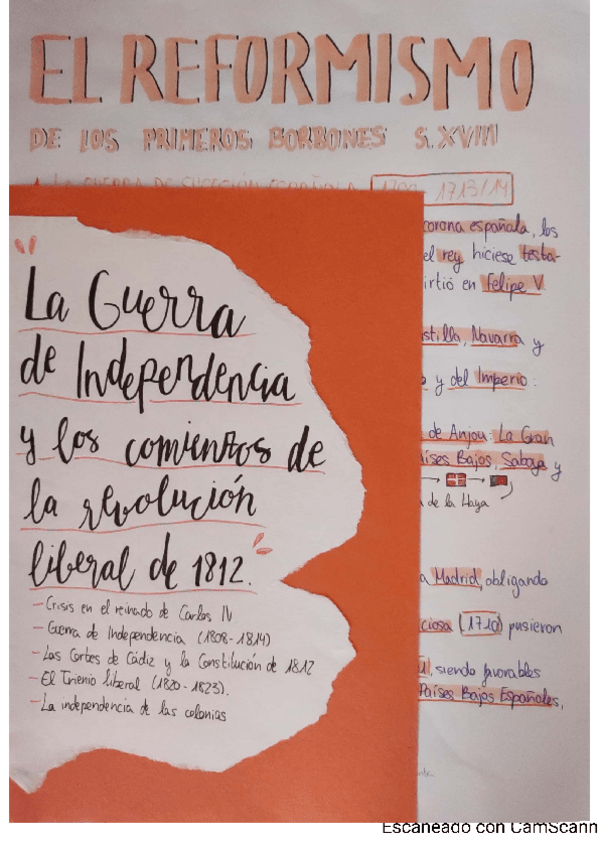 EL REFORMISMO
DE LOS PRIMEROS BORBONES S.XVIII
1700 - 1713/14
corona española, los
el rey hiciese testa-
irtió en Felipe V
La Guerra
stilla, Navarra y
de Independencia
y del Imperio:
y los comienzos de
de Anjou: La Gran
aíses Bajos, Saboya y
la revolución
de la Haya
liberal de 1812.
a Madrid, obligando
- Crisis en el reinado de Carlos IV
- Guerra de Independencia (1808-1814)
ciosa (1710) pusieron
- Las Cortes de Cádiz y la Constitución de 1812
siendo favorables
- El Trienio liberal (1820-1823).
Países Bajos Españoles,
- La independencia de las colonias
Escaneado con CamScann